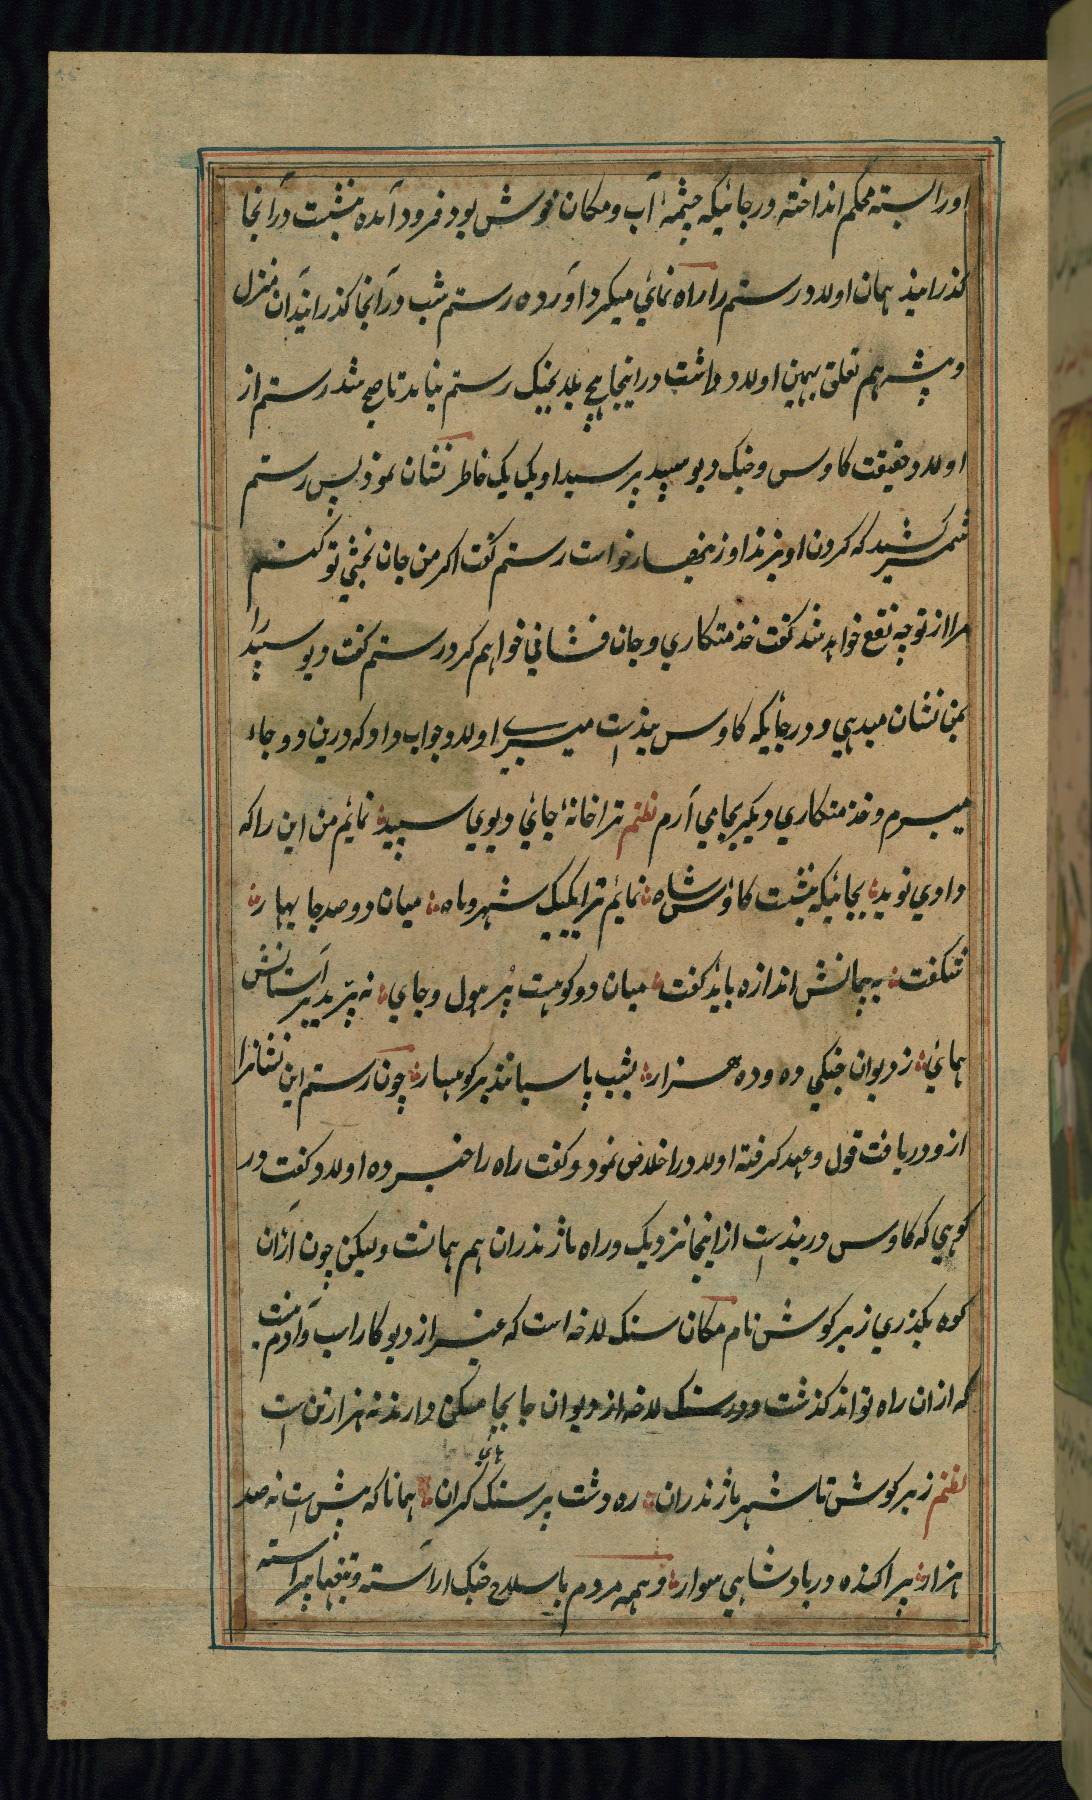 اورا بسته محکم انداخته ورجائیکه چشمهٔ آب و مکان خوش بود فرود آمده نشست درآنجا
گذرانید همان اولاد رستم را راه نمائی میکرد آورده رستم شب درآنجا گذرانید آن منزل
و بیشه هم تعلق بهمین اولاد داشت در اینجا هیچ بجنگ رستم نیامد تا صبح شد رستم از
اولاد حقیقت کاوس و جنگ دیو سپید پرسید او یک یک خاطر نشان نمود پس رستم
شمشیر کشید که گردن او بزند او زینهار خواست رستم گفت اگر من جان بخشی تو کنم
مرا از توچه نفع خواهد شد گفت خذمتکاری و جان فشانی خواهم کرد رستم گفت دیو سپید را
بمن نشان میدهی و درجائیکه کاوس ببندست میبری اولاد جواب داد که درین دو جاء
میبرم و خذمتکاری دیگر بجا می آرم نظم ترا خانهٔ جائی دیوی سپید نمایم من این را که
دادی نوید بجائیکه بنشست کاوس شاه نمایم ترا یکیک شهر و ماه میان دو صد جا بهار
شکفت به پیمانش اندازه باید گفت میان دو کوهست پر هول و جای نه پرید بر آسمانش
همای ز دیوان جنگی ده و ده هزار بشب پاسبانند بر کوهسار چون رستم این نشانرا
ازو دریافت قول و عهد گرفته اولاد را خلاص نمود و گفت راه را خبر ده اولاد گفت در
کوهی که کاوس دربندست از اینجا نزدیک و راه مازندران هم همانست ولیکن چون ازان
کوه بگذری زبر کوش نام مکان سنگ لاخه است که غیر از دیو کاراب و آدم نیست
که ازان راه تواند گذشت و در سنگ لاخه از دیوان جابجا مسکن دارند نه هزار تن است
نظم زبر کوش تا شهر مازندران ره دشت پر سنگ های گران همانا که بیش است نه صد
هزار پراکنده در پادشاهی سوار و همه مردم با سلاح جنگ اراسته و تیغها پیراسته